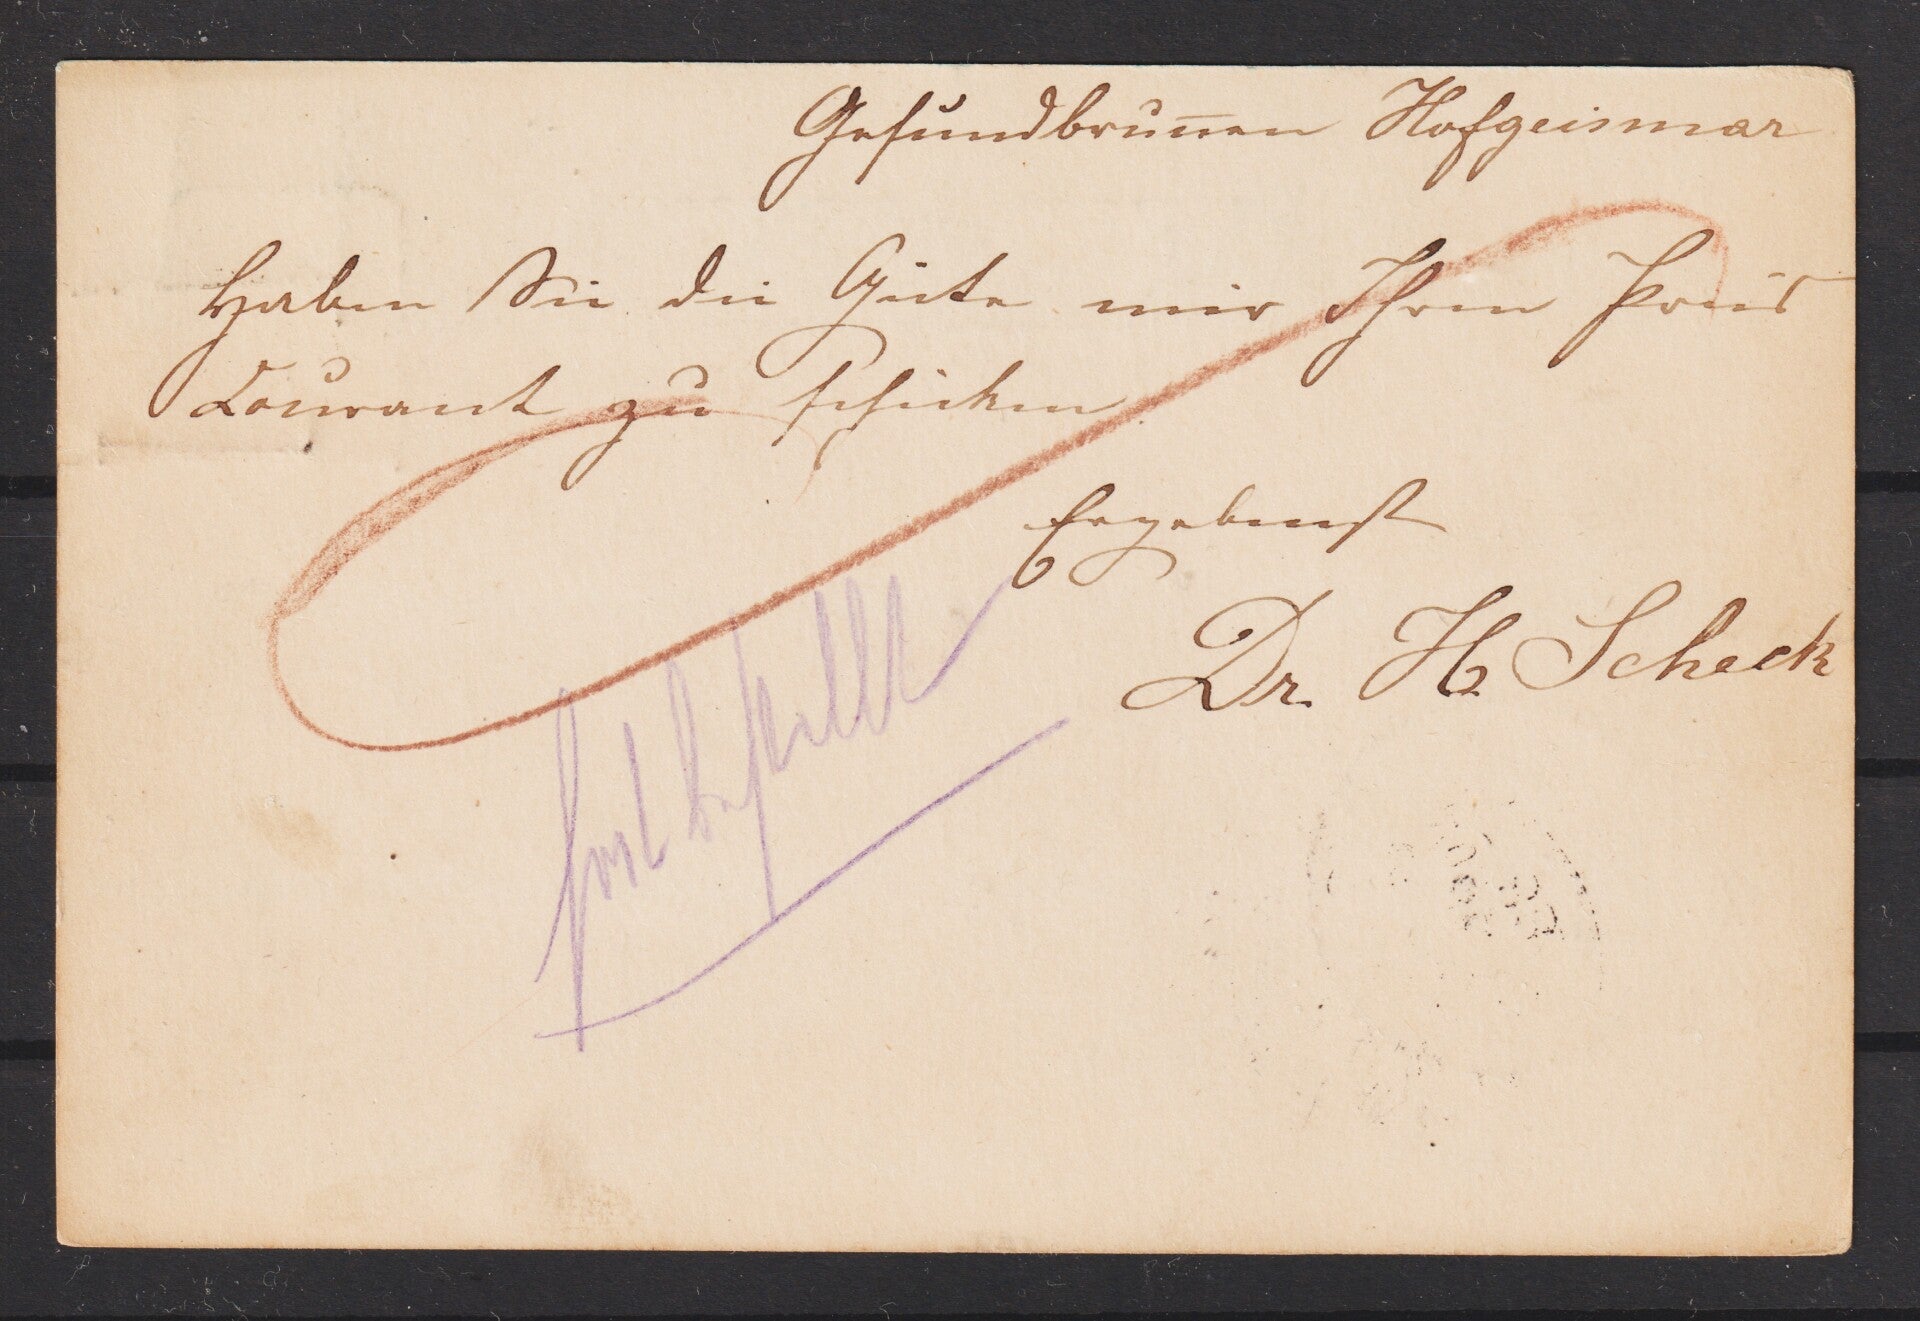 Gesundbrunnen Hofgeismar
Haben Sie die Güte mir Ihren Preis
Courant zu schicken
Ergebenst
Dr. H. Scheck